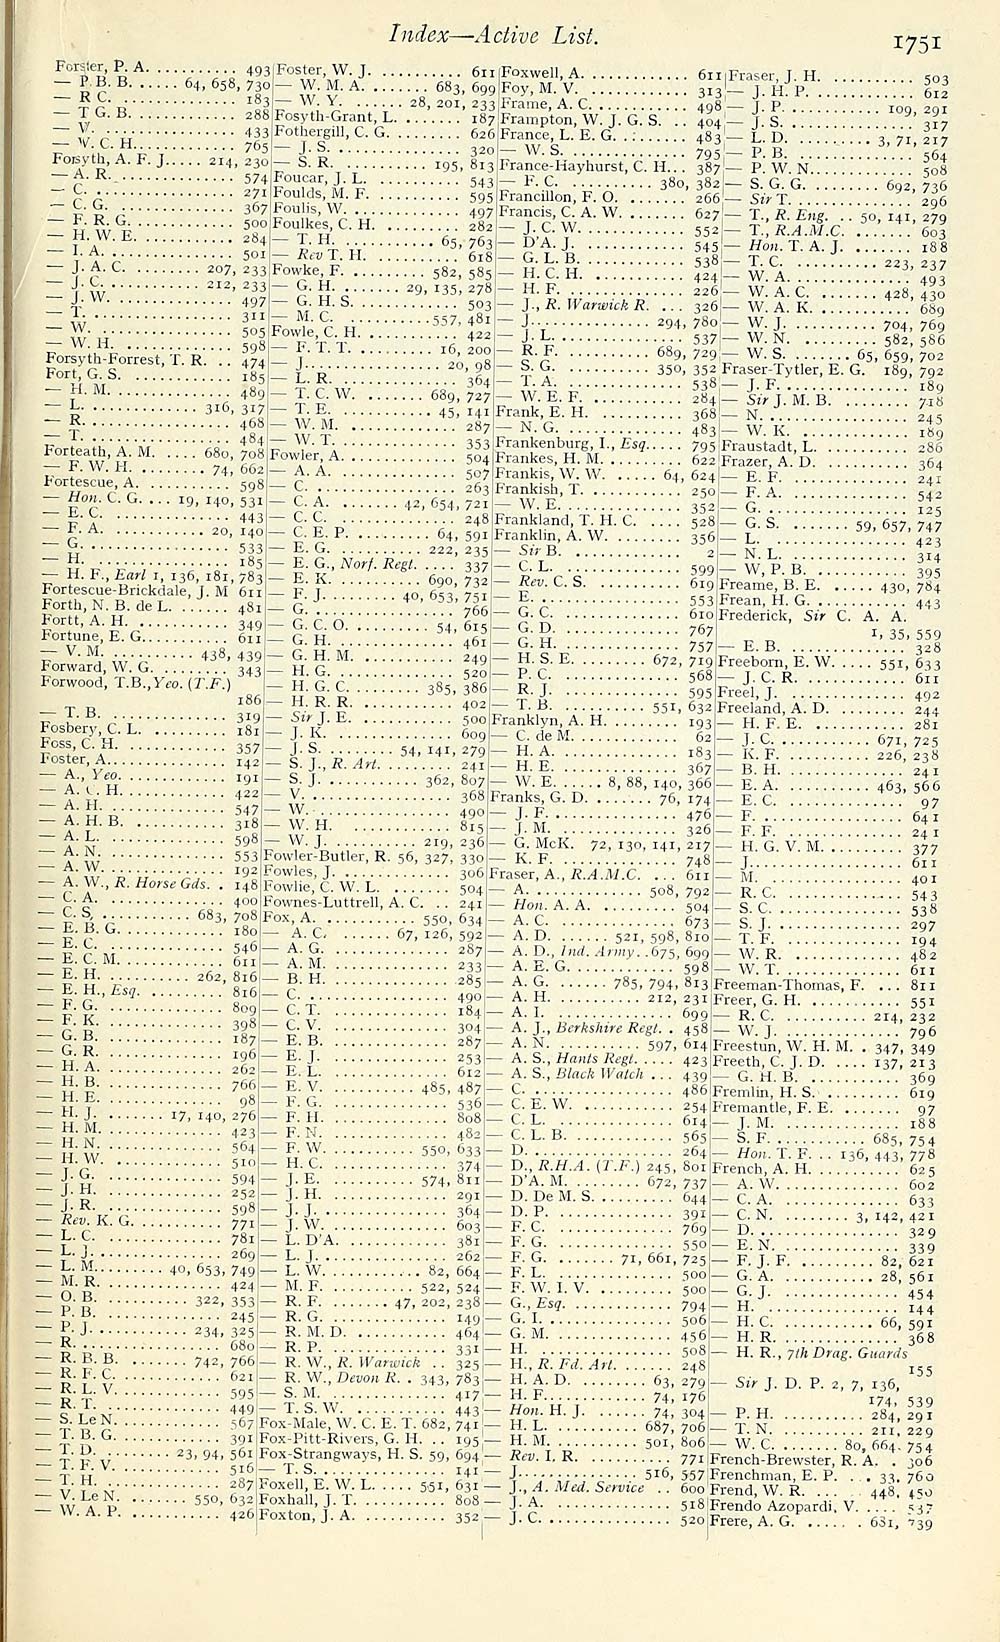 Index—Active List.
1751
Forster, P. A. .......... 493
— P. B. B. ...... 64, 658, 730
— R C. .............. 183
— T G. B. ............ 288
— V. ................ 433
— W. C. H. ............ 765
Forsyth, A. F. J. .... 214, 230
— A. R. .............. 574
— C. ................ 271
— C. G. .............. 367
— F. R. G. ............ 500
— H. W. E. ............ 284
— I. A. .............. 501
— J. A. C. ........ 207, 233
— J. C. ............ 212, 233
— J. W. .............. 497
— T. ................ 311
— W. ................ 505
— W. H. .............. 598
Forsyth-Forrest, T. R. .. 474
Fort, G. S. ............ 185
— H. M. .............. 489
— L. ............ 316, 317
— R. ................ 468
— T. ................ 484
Forteath, A. M. .... 680, 708
— F. W. H. ........ 74, 662
Fortescue, A. ............ 598
— Hon. C. G. ... 19, 140, 531
— E. C. .............. 443
— F. A. ............ 20, 140
— G. ................ 533
— H. ................ 185
— H. F., Earl 1, 136, 181, 783
Fortescue-Brickdale, J. M 611
Forth, N. B. de L. ...... 481
Fortt, A. H. ............ 349
Fortune, E. G. .......... 611
— V. M. .......... 438, 439
Forward, W. G. ........ 343
Forwood, T.B., Yeo. (T.F.)
186
— T. B. .............. 319
Fosbery, C. L. .......... 181
Foss, C. H. ............ 357
Foster, A. .............. 142
— A., Yeo. ............ 191
— A. C. H. ............ 422
— A. H. .............. 547
— A. H. B. ............ 318
— A. L. .............. 598
— A. N. .............. 553
— A. W. .............. 192
— A. W., R. Horse Gds. . 148
— C. A. .............. 400
— C. S. .......... 683, 708
— E. B. G. ............ 180
— E. C. .............. 546
— E. C. M. ............ 611
— E. H. .......... 262, 816
— E. H., Esq. .......... 816
— F. G. .............. 809
— F. K. .............. 398
— G. B. .............. 187
— G. R. .............. 196
— H. A. .............. 262
— H. B. .............. 766
— H. E. .............. 98
— H. J. ...... 17, 140, 276
— H. M. .............. 423
— H. N. .............. 564
— H. W. .............. 510
— J. G. .............. 594
— J. H. .............. 252
— J. R. .............. 598
— Rev. K. G. .......... 771
— L. C. .............. 781
— L. J. .............. 269
— L. M. ...... 40, 653, 749
— M. R. .............. 424
— O. B. .......... 322, 353
— P. B. .............. 245
— P. J. .......... 234, 325
— R. ................ 680
— R. B. B. ........ 742, 766
— R. F. C. ............ 621
— R. L. V. ............ 595
— R. T. .............. 449
— S. Le N. ............ 567
— T. B. G. ............ 391
— T. D. ........ 23, 94, 561
— T. F. V. ............ 516
— T. H. .............. 287
— V. Le N. ...... 550, 632
— W. A. P. ............ 426
Foster, W. J. .......... 611
— W. M. A. ...... 683, 699
— W. Y. ...... 28, 201, 233
Fosyth-Grant, L. ...... 187
Fothergill, C. G. ........ 626
— J. S. .............. 320
— S. R. .......... 195, 813
Foucar, J. L. .......... 543
Foulds, M. F. .......... 595
Foulis, W. ............ 497
Foulkes, C. H. .......... 282
— T. H. .......... 65, 763
— Rev T. H. .......... 618
Fowke, F. ........ 582, 585
— G. H. ...... 29, 135, 278
— G. H. S. ............ 503
— M. C. .......... 557, 481
Fowle, C. H. .......... 422
— F. T. T. ........ 16, 200
— J. .............. 20, 98
— L. R. .............. 364
— T. C. W. ...... 689, 727
— T. E. .......... 45, 141
— W. M. .............. 287
— W. T. .............. 353
Fowler, A. .............. 504
— A. A. .............. 507
— C. ................ 263
— C. A. ...... 42, 654, 721
— C. C. .............. 248
— C. E. P. ........ 64, 591
— E. G. .......... 222, 235
— E. G., Norf. Regt. .... 337
— E. K. .......... 690, 732
— F. J. ...... 40, 653, 751
— G. ................ 766
— G. C. O. ........ 54, 615
— G. H. .............. 461
— G. H. M. ............ 249
— H. G. .............. 520
— H. G. C. ........ 385, 386
— H. R. R. ............ 402
— Sir J. E. ............ 500
— J. K. .............. 609
— J. S. ........ 54, 141, 279
— S. J., R. Art. ........ 241
— S. J. .......... 362, 807
— V. ................ 368
— W. ................ 490
— W. H. .............. 815
— W. J. .......... 219, 236
Fowler-Butler, R. 56, 327, 330
Fowles, J. .............. 306
Fowlie, C. W. L. ........ 504
Fownes-Luttrell, A. C. .. 241
Fox, A. .......... 550, 634
— A. C. ...... 67, 126, 592
— A. G. .............. 287
— A. M. .............. 233
— B. H. .............. 285
— C. ................ 490
— C. T. .............. 184
— C. V. .............. 304
— E. B. .............. 287
— E. J. .............. 253
— E. L. .............. 612
— E. V. .......... 485, 487
— F. G. .............. 536
— F. H. .............. 808
— F. N. .............. 482
— F. W. .......... 550, 633
— H. C. .............. 374
— J. E. .......... 574, 811
— J. H. .............. 291
— J. J. .............. 364
— J. W. .............. 603
— L. D'A. ............ 381
— L. J. .............. 262
— L. W. .......... 82, 664
— M. F. .......... 522, 524
— R. F. ...... 47, 202, 238
— R. G. .............. 149
— R. M. D. ............ 464
— R. P. .............. 331
— R. W., R. Warwick .. 325
— R. W., Devon R. . 343, 783
— S. M. .............. 417
— T. S. W. ............ 443
Fox-Male, W. C. E. T. 682, 741
Fox-Pitt-Rivers, G. H. .. 195
Fox-Strangways, H. S. 59, 694
— T. S. .............. 141
Foxell, E. W. L. .... 551, 631
Foxhall, J. T. .......... 808
Foxton, J. A. .......... 352
Foxwell, A. ............ 611
Foy, M. V. ............ 313
Frame, A. C. .......... 498
Frampton, W. J. G. S. .. 404
France, L. E. G. ........ 483
— W. S. .............. 795
France-Hayhurst, C. H... 387
— F. C. .......... 380, 382
Francillon, F. O. ...... 266
Francis, C. A. W. ...... 627
— J. C. W. ............ 552
— D'A. J. ............ 545
— G. L. B. ............ 538
— H. C. H. ............ 424
— H. F. .............. 226
— J., R. Warwick R. ... 326
— J. ............ 294, 780
— J. L. .............. 537
— R. F. .......... 689, 729
— S. G. .......... 350, 352
— T. A. .............. 538
— W. E. F. ............ 284
Frank, E. H. .......... 368
— N. G. .............. 483
Frankenburg, I., Esq. ... 795
Frankes, H. M. ........ 622
Frankis, W. W. ..... 64, 624
Frankish, T. .......... 250
— W. E. .............. 352
Frankland, T. H. C. .... 528
Franklin, A. W. ........ 356
— Sir B. .............. 2
— C. L. .............. 599
— Rev. C. S. .......... 619
— E. ................ 553
— G. C. .............. 610
— G. D. .............. 767
— G. H. .............. 757
— H. S. E. ........ 672, 719
— P. C. .............. 568
— R. J. .............. 595
— T. B. .......... 551, 632
Franklyn, A. H. ........ 193
— C. de M. ............ 62
— H. A. .............. 183
— H. E. .............. 367
— W. E. ...... 8, 88, 140, 366
Franks, G. D. ...... 76, 174
— J. F. .............. 476
— J. M. .............. 326
— G. McK. 72, 130, 141, 217
— K. F. .............. 748
Fraser, A., R.A.M.C. ... 611
— A. ............ 508, 792
— Hon. A. A. .......... 504
— A. C. .............. 673
— A. D. ...... 521, 598, 810
— A. D., Ind. Army..675, 699
— A. E. G. ............ 598
— A. G. ...... 785, 794, 813
— A. H. .......... 212, 231
— A. I. .............. 699
— A. J., Berkshire Regt. . 458
— A. N. .......... 597, 614
— A. S., Hants Regt. .... 423
— A. S., Black Watch ... 439
— C. ................ 486
— C. E. W. ............ 254
— C. L. .............. 614
— C. L. B. ............ 565
— D. ................ 264
— D., R.H.A. (T.F.) 245, 801
— D'A. M. ........ 672, 737
— D. De M. S. .......... 644
— D. P. .............. 391
— F. C. .............. 769
— F. G. .............. 550
— F. G. ...... 71, 661, 725
— F. L. .............. 500
— F. W. I. V. .......... 500
— G., Esq. ............ 794
— G. I. .............. 506
— G. M. .............. 456
— H. ................ 508
— H., R. Fd. Art. ...... 248
— H. A. D. ........ 63, 279
— H. F. .......... 74, 176
— Hon. H. J. ...... 74, 304
— H. L. .......... 687, 706
— H. M. .......... 501, 806
— Rev. I. R. .......... 771
— J. ............ 516, 557
— J., A. Med. Service .. 600
— J. A. .............. 518
— J. C. .............. 520
Fraser, J. H. .......... 503
— J. H. P. ............ 612
— J. P. .......... 109, 291
— J. S. .............. 317
— L. D. ........ 3, 71, 217
— P. B. .............. 564
— P. W. N. ............ 508
— S. G. G. ........ 692, 736
— Sir T. .............. 296
— T., R. Eng. .. 50, 141, 279
— T., R.A.M.C. ........ 603
— Hon. T. A. J. ...... 188
— T. C. .......... 223, 237
— W. A. .............. 493
— W. A. C. ........ 428, 430
— W. A. K. ............ 689
— W. J. .......... 704, 769
— W. N. .......... 582, 586
— W. S. ...... 65, 659, 702
Fraser-Tytler, E. G. 189, 792
— J. F. .............. 189
— Sir J. M. B. ........ 718
— N. ................ 245
— W. K. .............. 189
Fraustadt, L. .......... 286
Frazer, A. D. .......... 364
— E. F. .............. 241
— F. A. .............. 542
— G. ................ 125
— G. S. ...... 59, 657, 747
— L. ................ 423
— N. L. .............. 314
— W, P. B. ............ 395
Freame, B. E. ...... 430, 784
Frean, H. G. .......... 443
Frederick, Sir C. A. A.
1, 35, 559
— E. B. .............. 328
Freeborn, E. W. .... 551, 633
— J. C. R. ............ 611
Freel, J. .............. 492
Freeland, A. D. ........ 244
— H. F. E. ............ 281
— J. C. .......... 671, 725
— K. F. .......... 226, 238
— B. H. .............. 241
— E. A. .......... 463, 566
— E. C. .............. 97
— F. ................ 641
— F. F. .............. 241
— H. G. V. M. .......... 377
— J. ................ 611
— M. ................ 401
— R. C. .............. 543
— S. C. .............. 538
— S. J. .............. 297
— T. F. .............. 194
— W. R. .............. 482
— W. T. .............. 611
Freeman-Thomas, F. ... 811
Freer, G. H. .......... 551
— R. C. .......... 214, 232
— W. J. .............. 796
Freestun, W. H. M. . 347, 349
Freeth, C. J. D. .... 137, 213
— G. H. B. ............ 369
Fremlin, H. S. .......... 619
Fremantle, F. E. ...... 97
— J. M. .............. 188
— S. F. .......... 685, 754
— Hon. T. F. .. 136, 443, 778
French, A. H. .......... 625
— A. W. .............. 602
— C. A. .............. 633
— C. N. ...... 3, 142, 421
— D. ................ 329
— E. N. .............. 339
— F. J. F. ........ 82, 621
— G. A. .......... 28, 561
— G. J. .............. 454
— H. ................ 144
— H. C. .......... 66, 591
— H. R. .............. 368
— H. R., 7th Drag. Guards
155
— Sir J. D. P. 2, 7, 136,
174, 539
— P. H. .......... 284, 291
— T. N. .......... 211, 229
— W. C. ...... 80, 664, 754
French-Brewster, R. A. . 306
Frenchman, E. P. ... 33, 760
Frend, W. R. ...... 448, 450
Frendo Azopardi, V. .... 537
Frere, A. G. ...... 681, 739